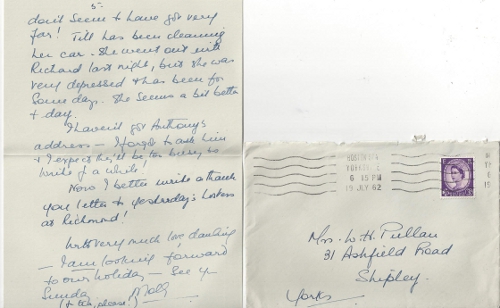 5-
don't seem to have got very
far! Till has been cleaning
her car. She went out with
Richard last night, but she was
very depressed & has been for
some days. She seems a bit better
to day.
I haven't got Anthony's
address - I forgot to ask him
& I expect he'll be too busy to
write for a while!
Now I better write a thank
you letter to yesterday's hostess
at Richmond!
With very much love darling
- I am looking forward
to our holiday - See you
Sunday
(& tea please!)
6 15 PM
19 JLY 62
Mrs. W. H. Pullan
31 Ashfield Road
Shipley.
Yorks